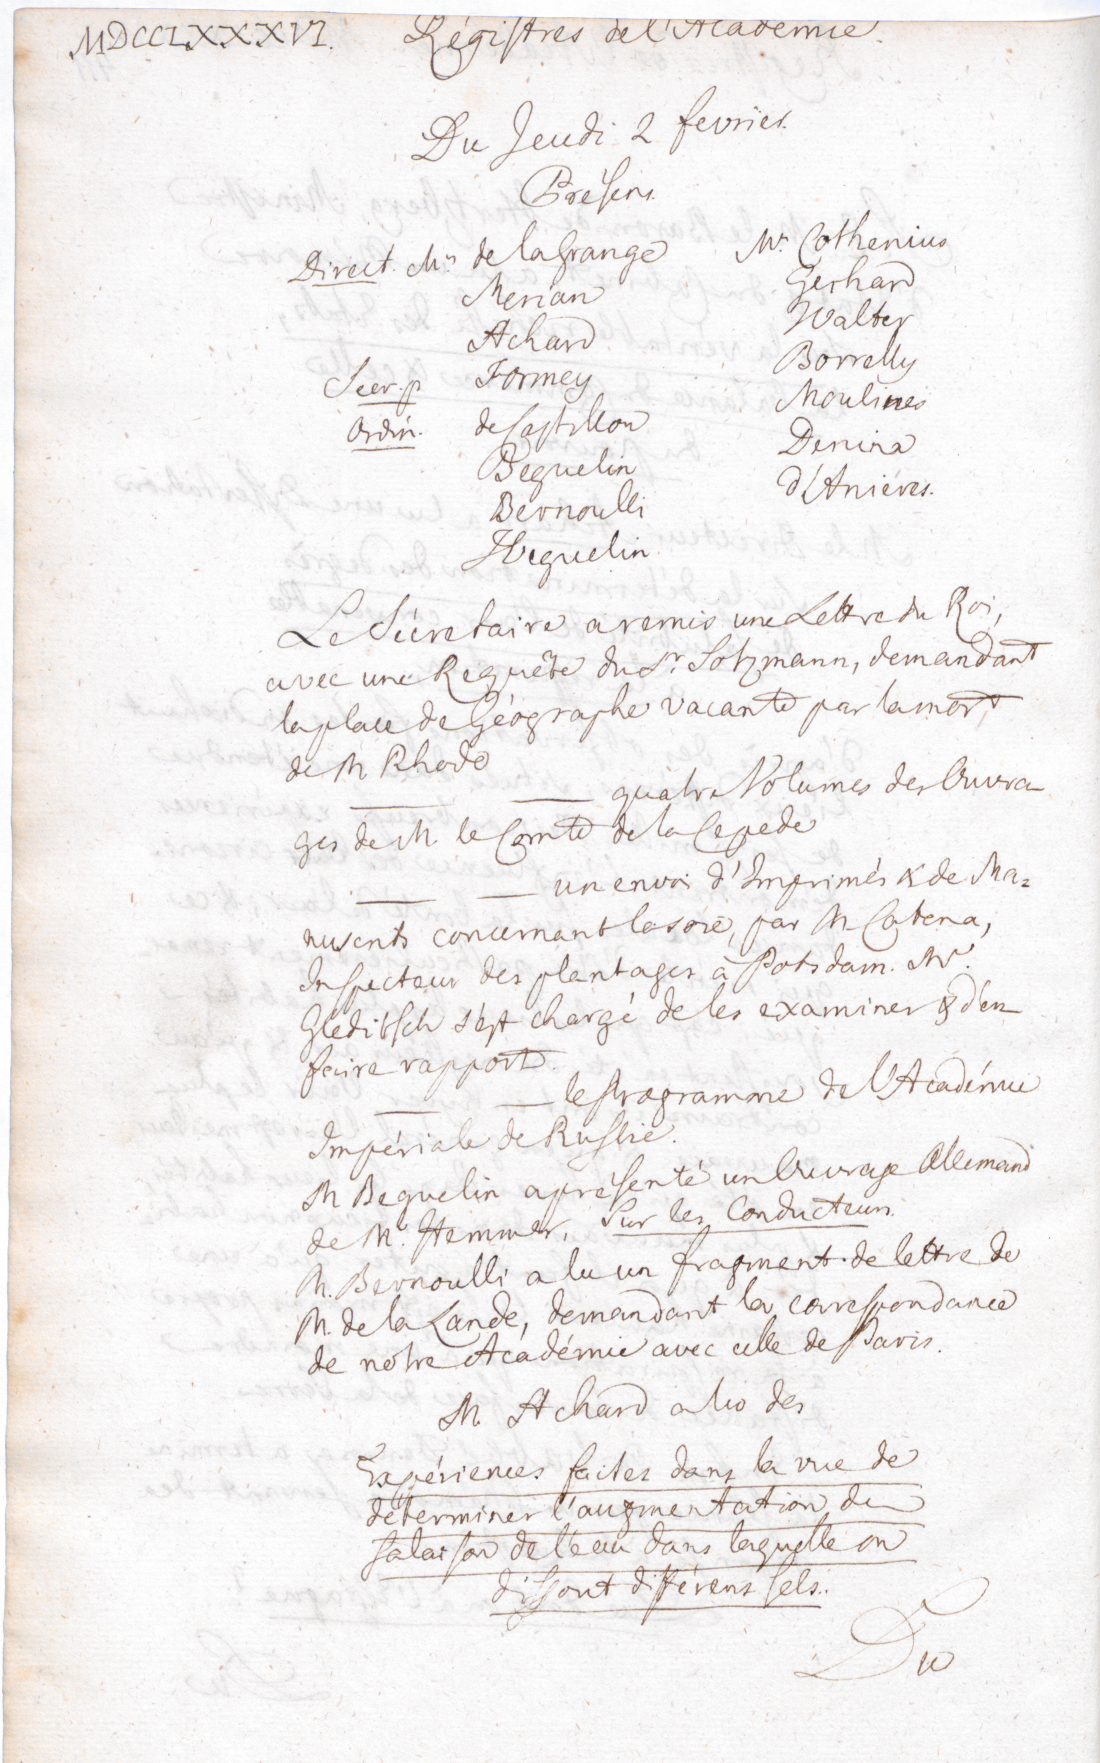 MDCCLXXXVI. Régistres de l'Academie.
Du Jeudi 2 fevrier.
Présens.
Direct. Mrs de la Grange
Merian
Achard
Secr. p. Formey
Ordin. de Castillon
Beguelin
Bernoulli
Mr. Cothenius
Gerhard
Walter
Borrelly
Moulines
Denina
d'Anières.
Le Sécretaire a remis une Lettre du Roi,
avec une Requête du Sr. Sotzmann, demandant
la place de Géographe vacante par la mort
de M Rhode
quatre Volumes des Ouvra-
ges de M. le Comte de la Cepede
un envoi d'Imprimés & de Ma=
nuscrits concernant la soie, par M Catena,
Inspecteur des plantages à Potsdam. Mr.
Gleditsch s'est chargé de les examiner & d'en
faire rapport.
le Programme de l'Académie
Impériale de Russie.
M Beguelin a présenté un Ouvrage Allemand
de M. Hemmer, Sur les Conducteurs.
M. Bernoulli a lu un fragment de lettre de
M. de la Lande, demandant la correspondance
de notre Académie avec celle de Paris.
M. Achard a lû des
Expériences faites dans la vue de
déterminer l'augmentation du
de l'eau dans laquelle on
dissout différens sels.
Du